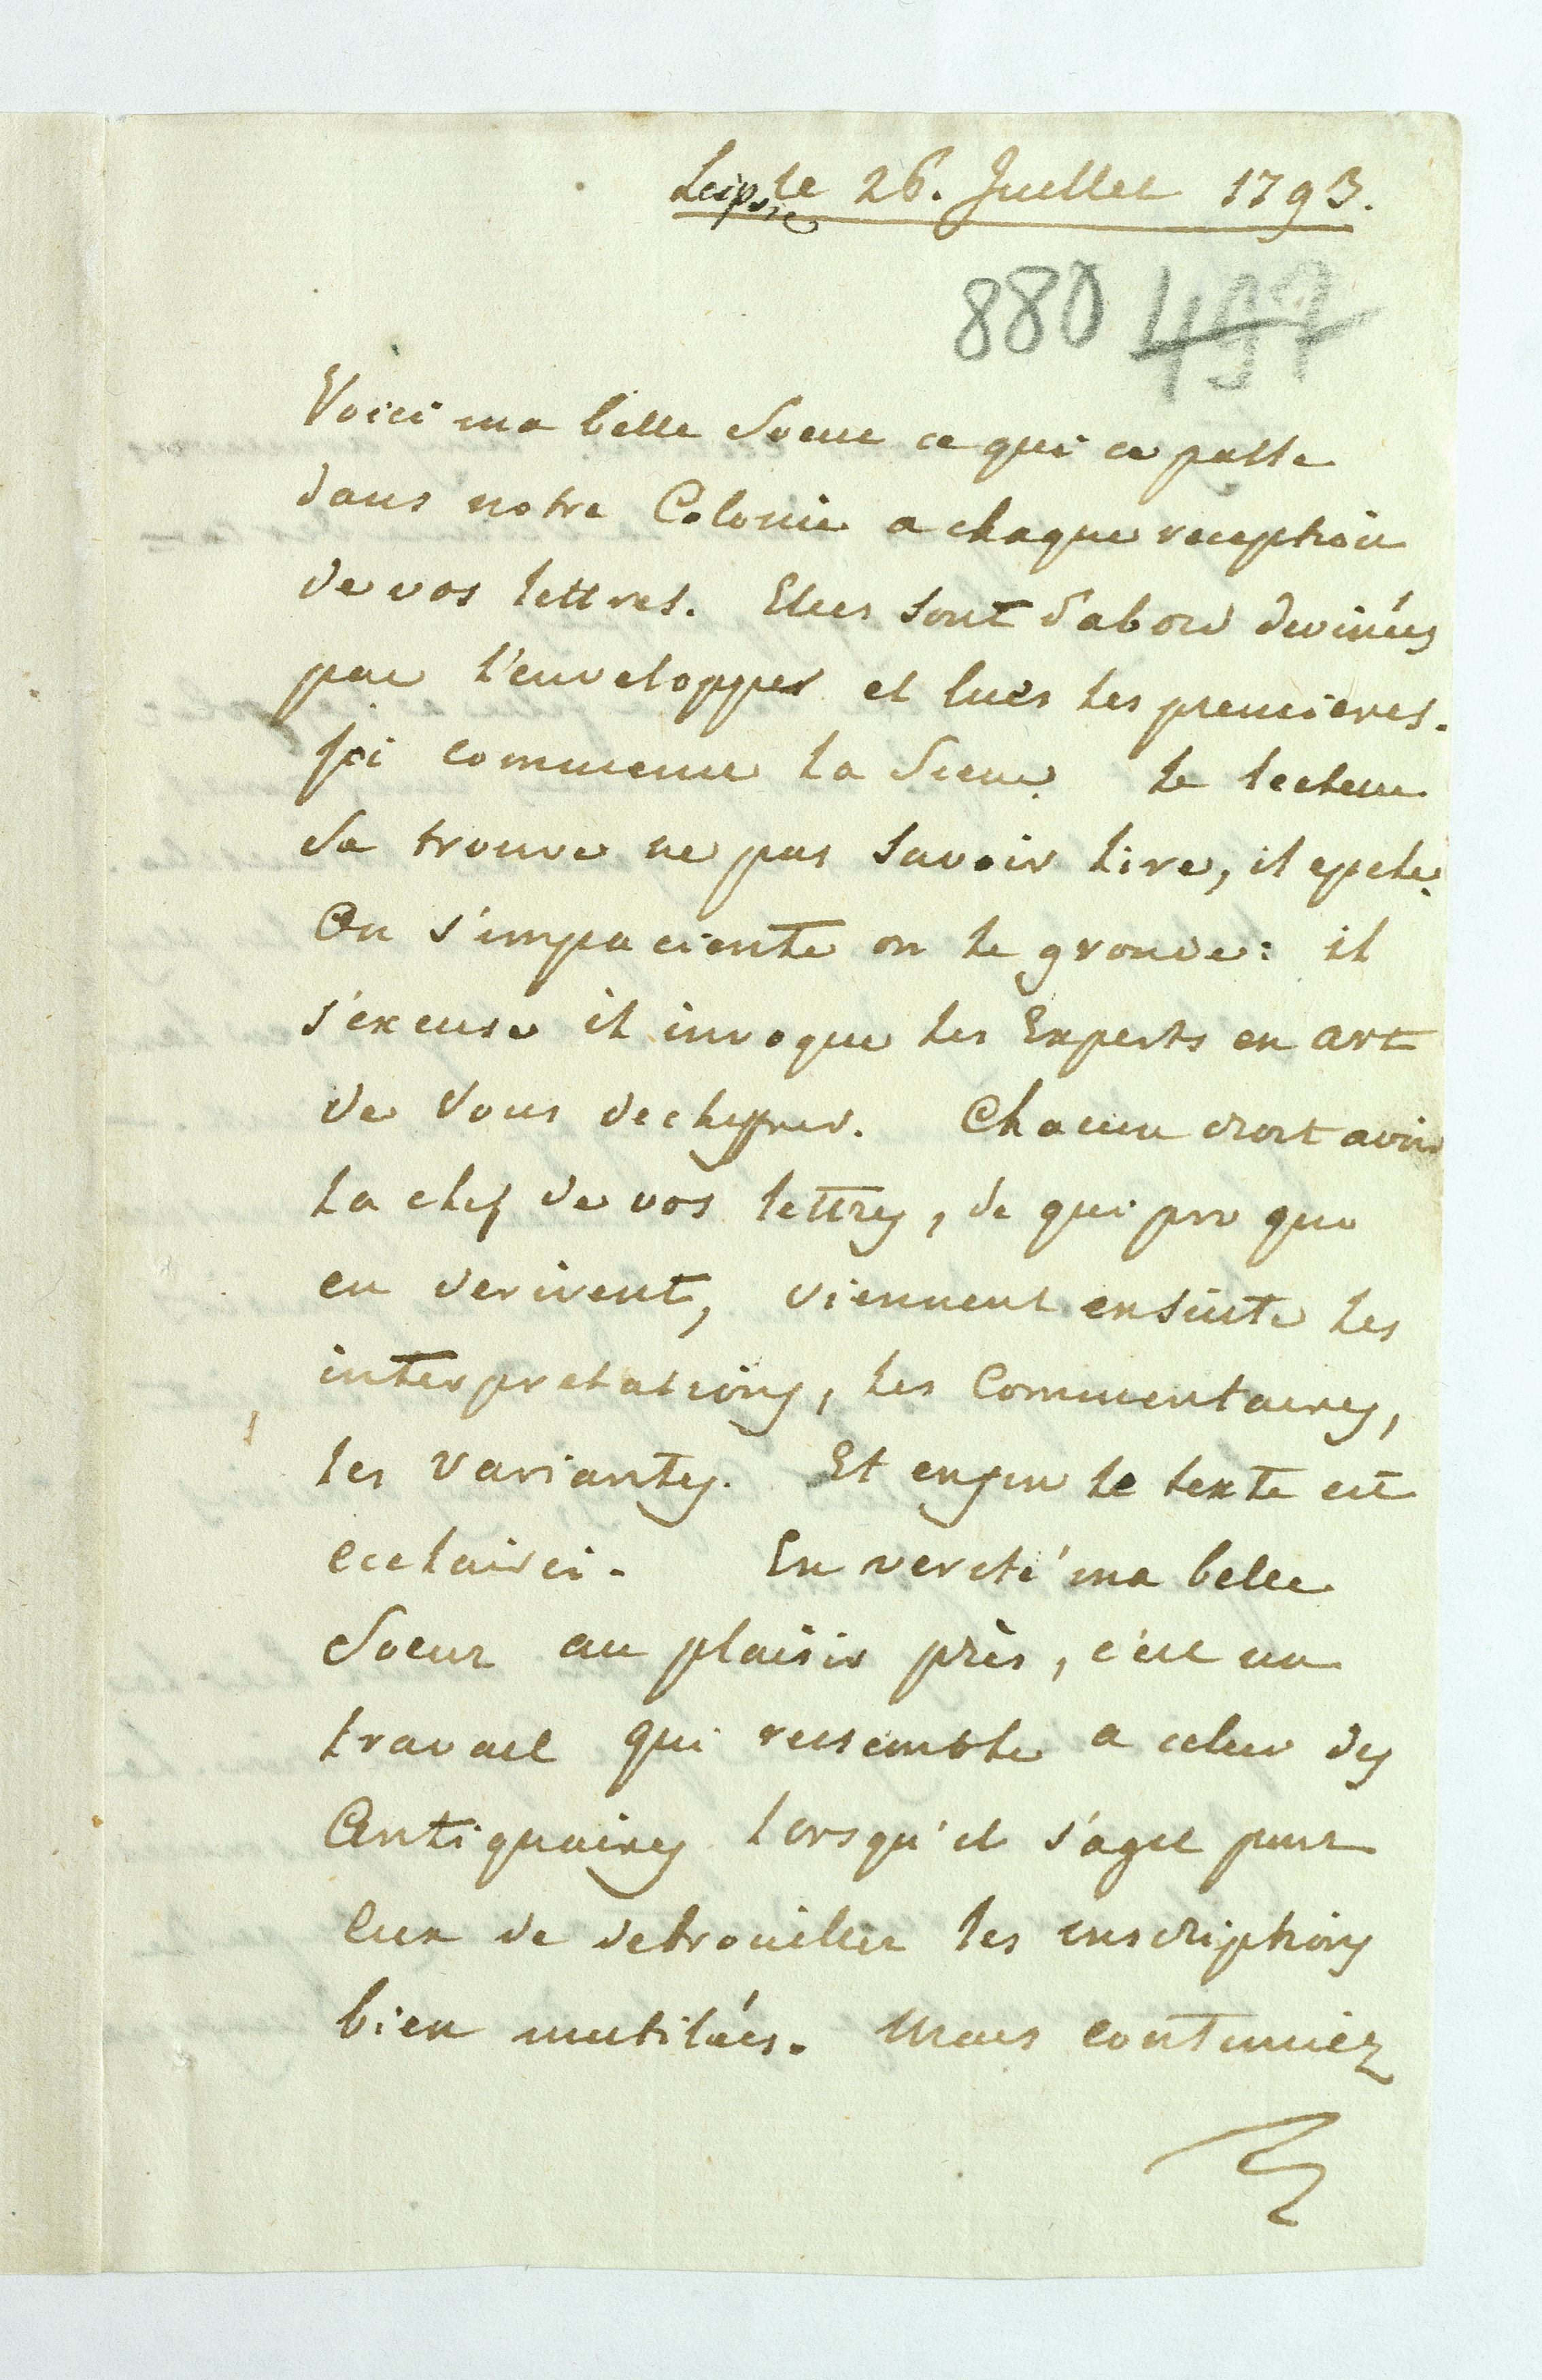 Leipsic le 26. Juillet 1793.
880 497
Voici ma belle Soeur ce qui ce passe
dans notre Colonie a chaque reception
de vos lettres. Elles sont d'abord devinées
par l'enveloppes et lues les premieres.
Ici commence la Scene. Le lecteur
se trouve ne pas savoir lire, il epele.
On s'impaciente on le gronde: il
s'excuse il invoque les Experts en art
de Vous dechiffrer. Chacun croit avoir
la clef de vos lettres, de qui pro quo
en derivent, viennent ensuite les
interpretations, les Commentaires,
les variantes. Et enfin le texte est
ecclairci. En verité ma belle
Soeur au plaisir près, c'est un
travail qui ressemble a celui des
Antiquaires lorsqu'il s'agit pour
eux de debrouiller les inscriptions
bien mutilées. Mais continuez